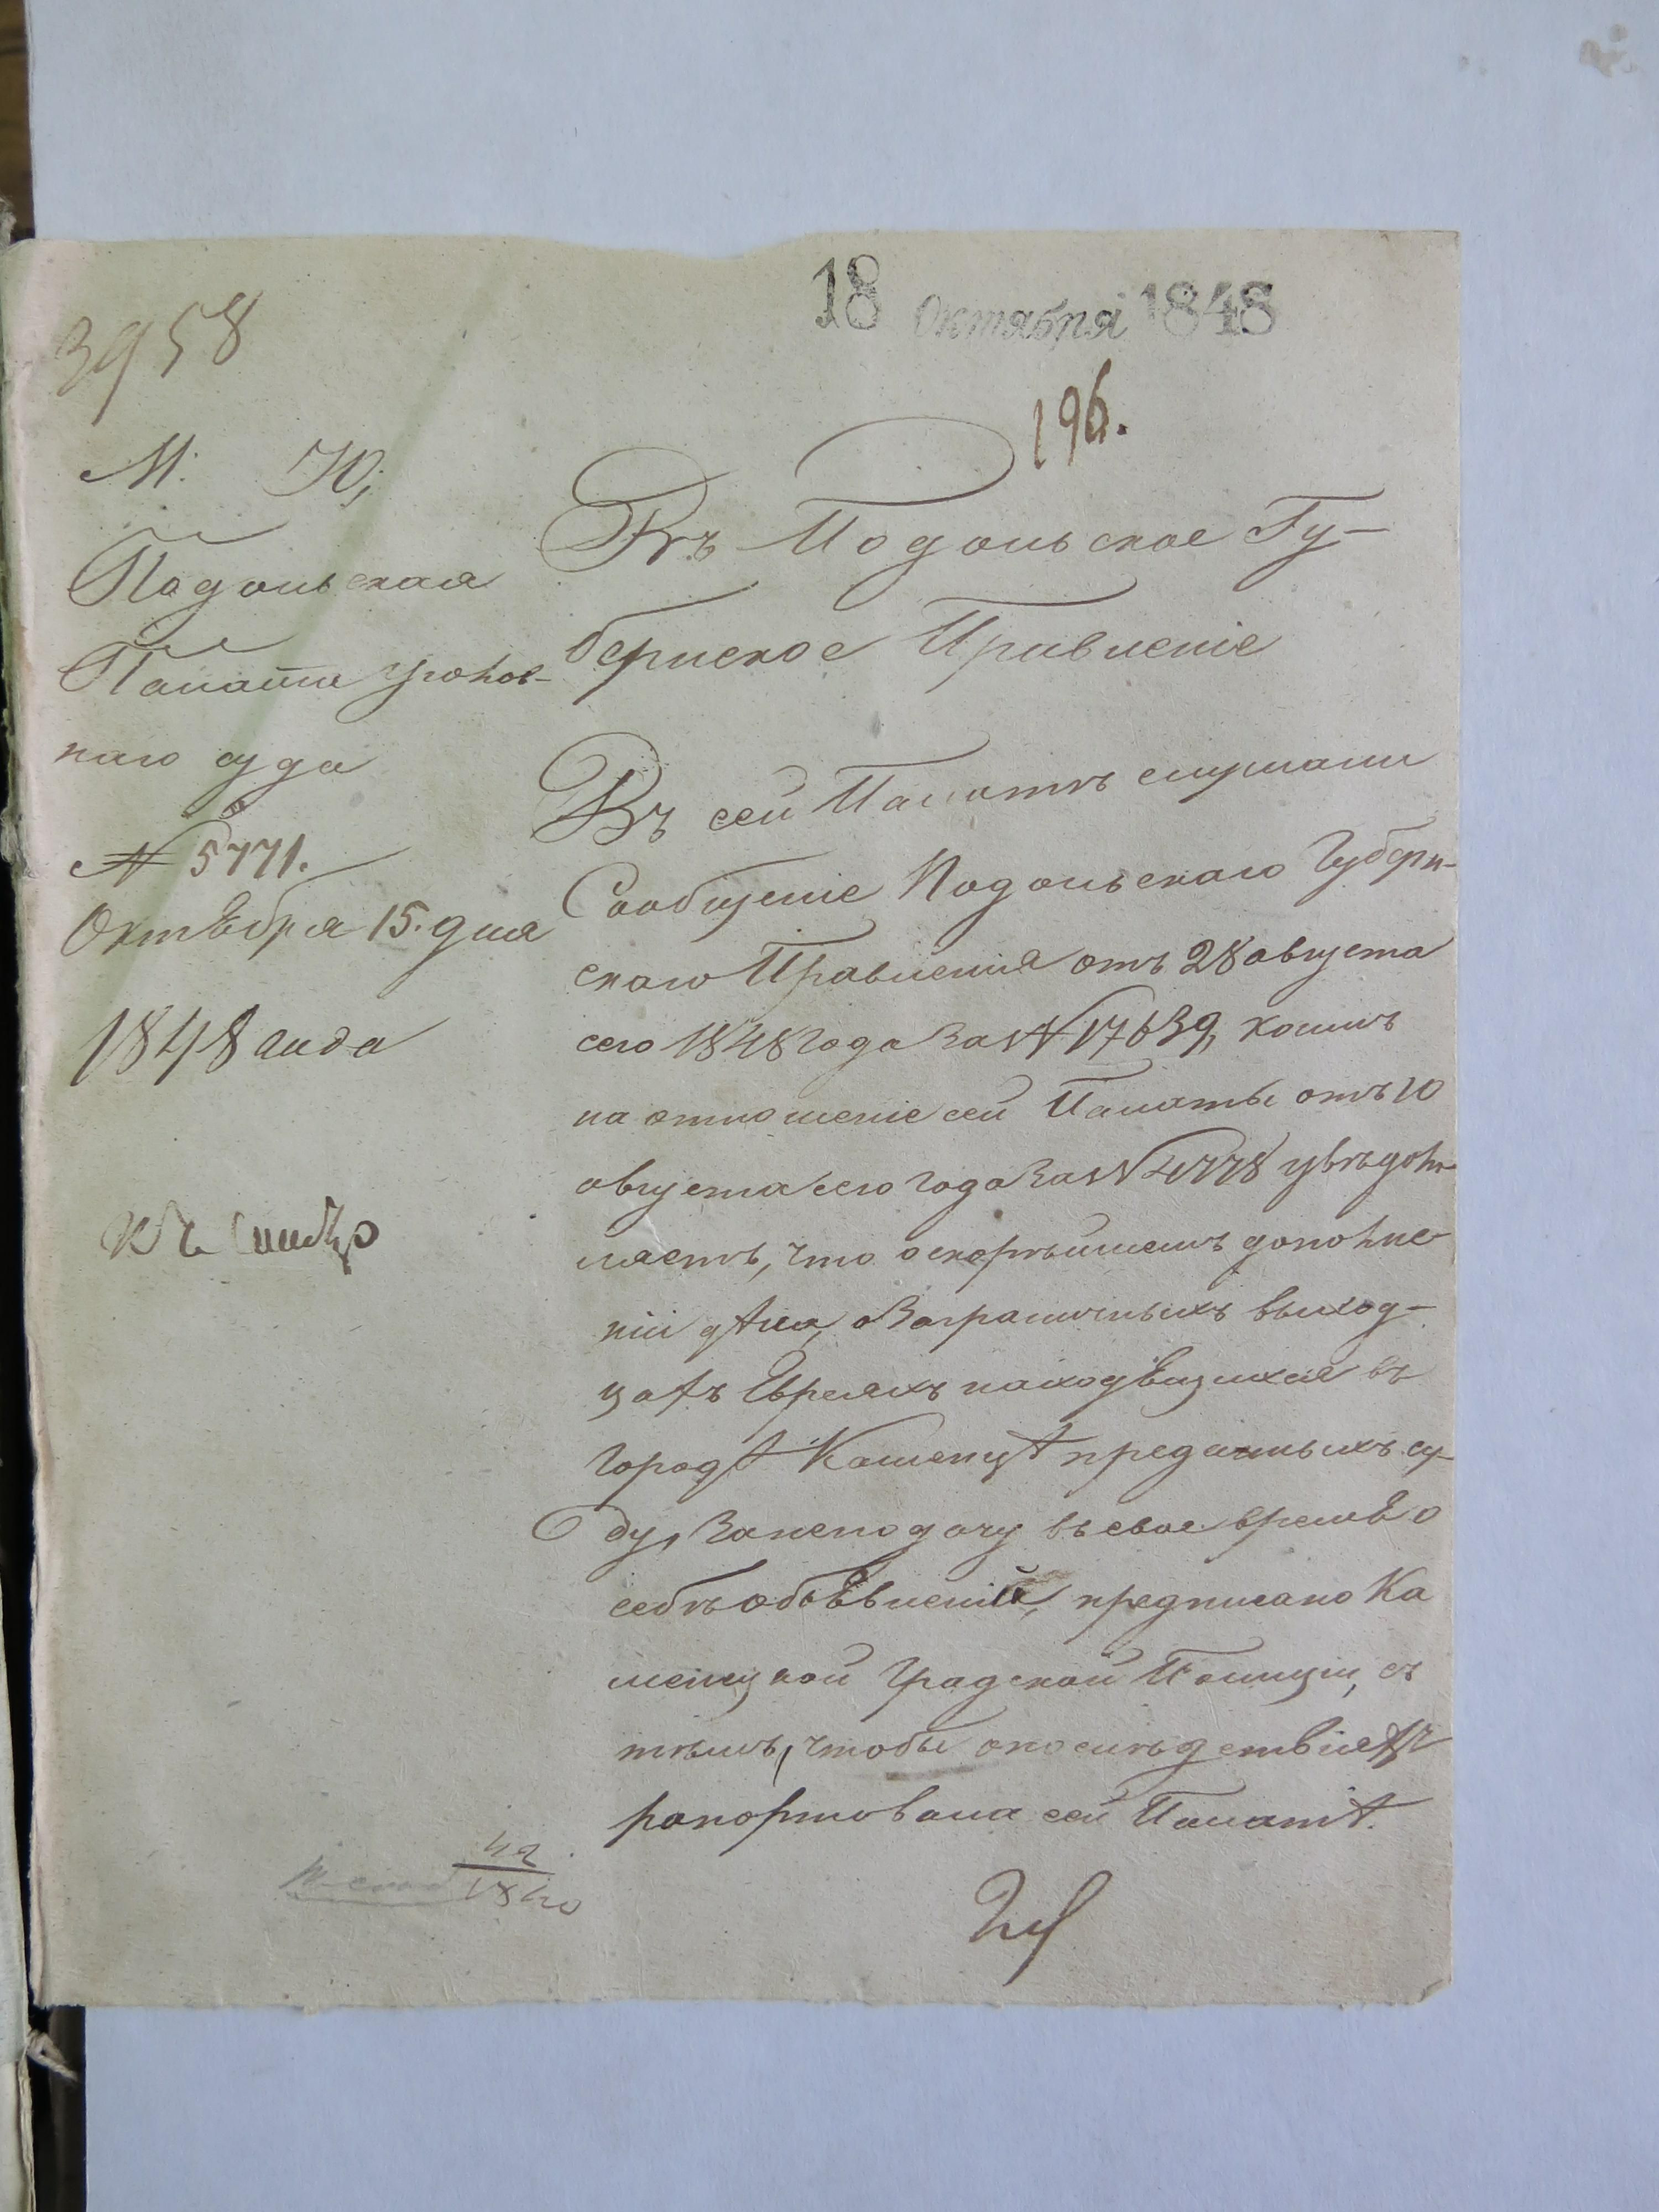 18 Октября 1848
3958
196.
М: Ю;
Подольская
Палата Уголов-
наго суда
№ 5771.
Октября 15. дня
1848 года
Въ Подольское Гу-
бернское Правленіе
Въ сей Палатѣ слушали
Сообщеніе Подольскаго Губерн-
скаго Правленія отъ 28 августа
сего 1848 года за № 17639, коимъ
на отношеніе сей Палаты отъ 10
августа сего года за № 4778 увѣдом-
ляетъ, что о скорѣйшемъ дополне-
ніи дѣла, о заграничныхъ выход-
цахъ Евреяхъ находящихся въ
городѣ Каменцѣ преданныхъ су-
ду, за неподачу въ свое время о
себѣ объявленій, предписано Ка
менецкой Градской Полиціи, съ
тѣмъ, чтобы о послѣдствіяхъ
рапортовала сей Палатѣ.
42
1840